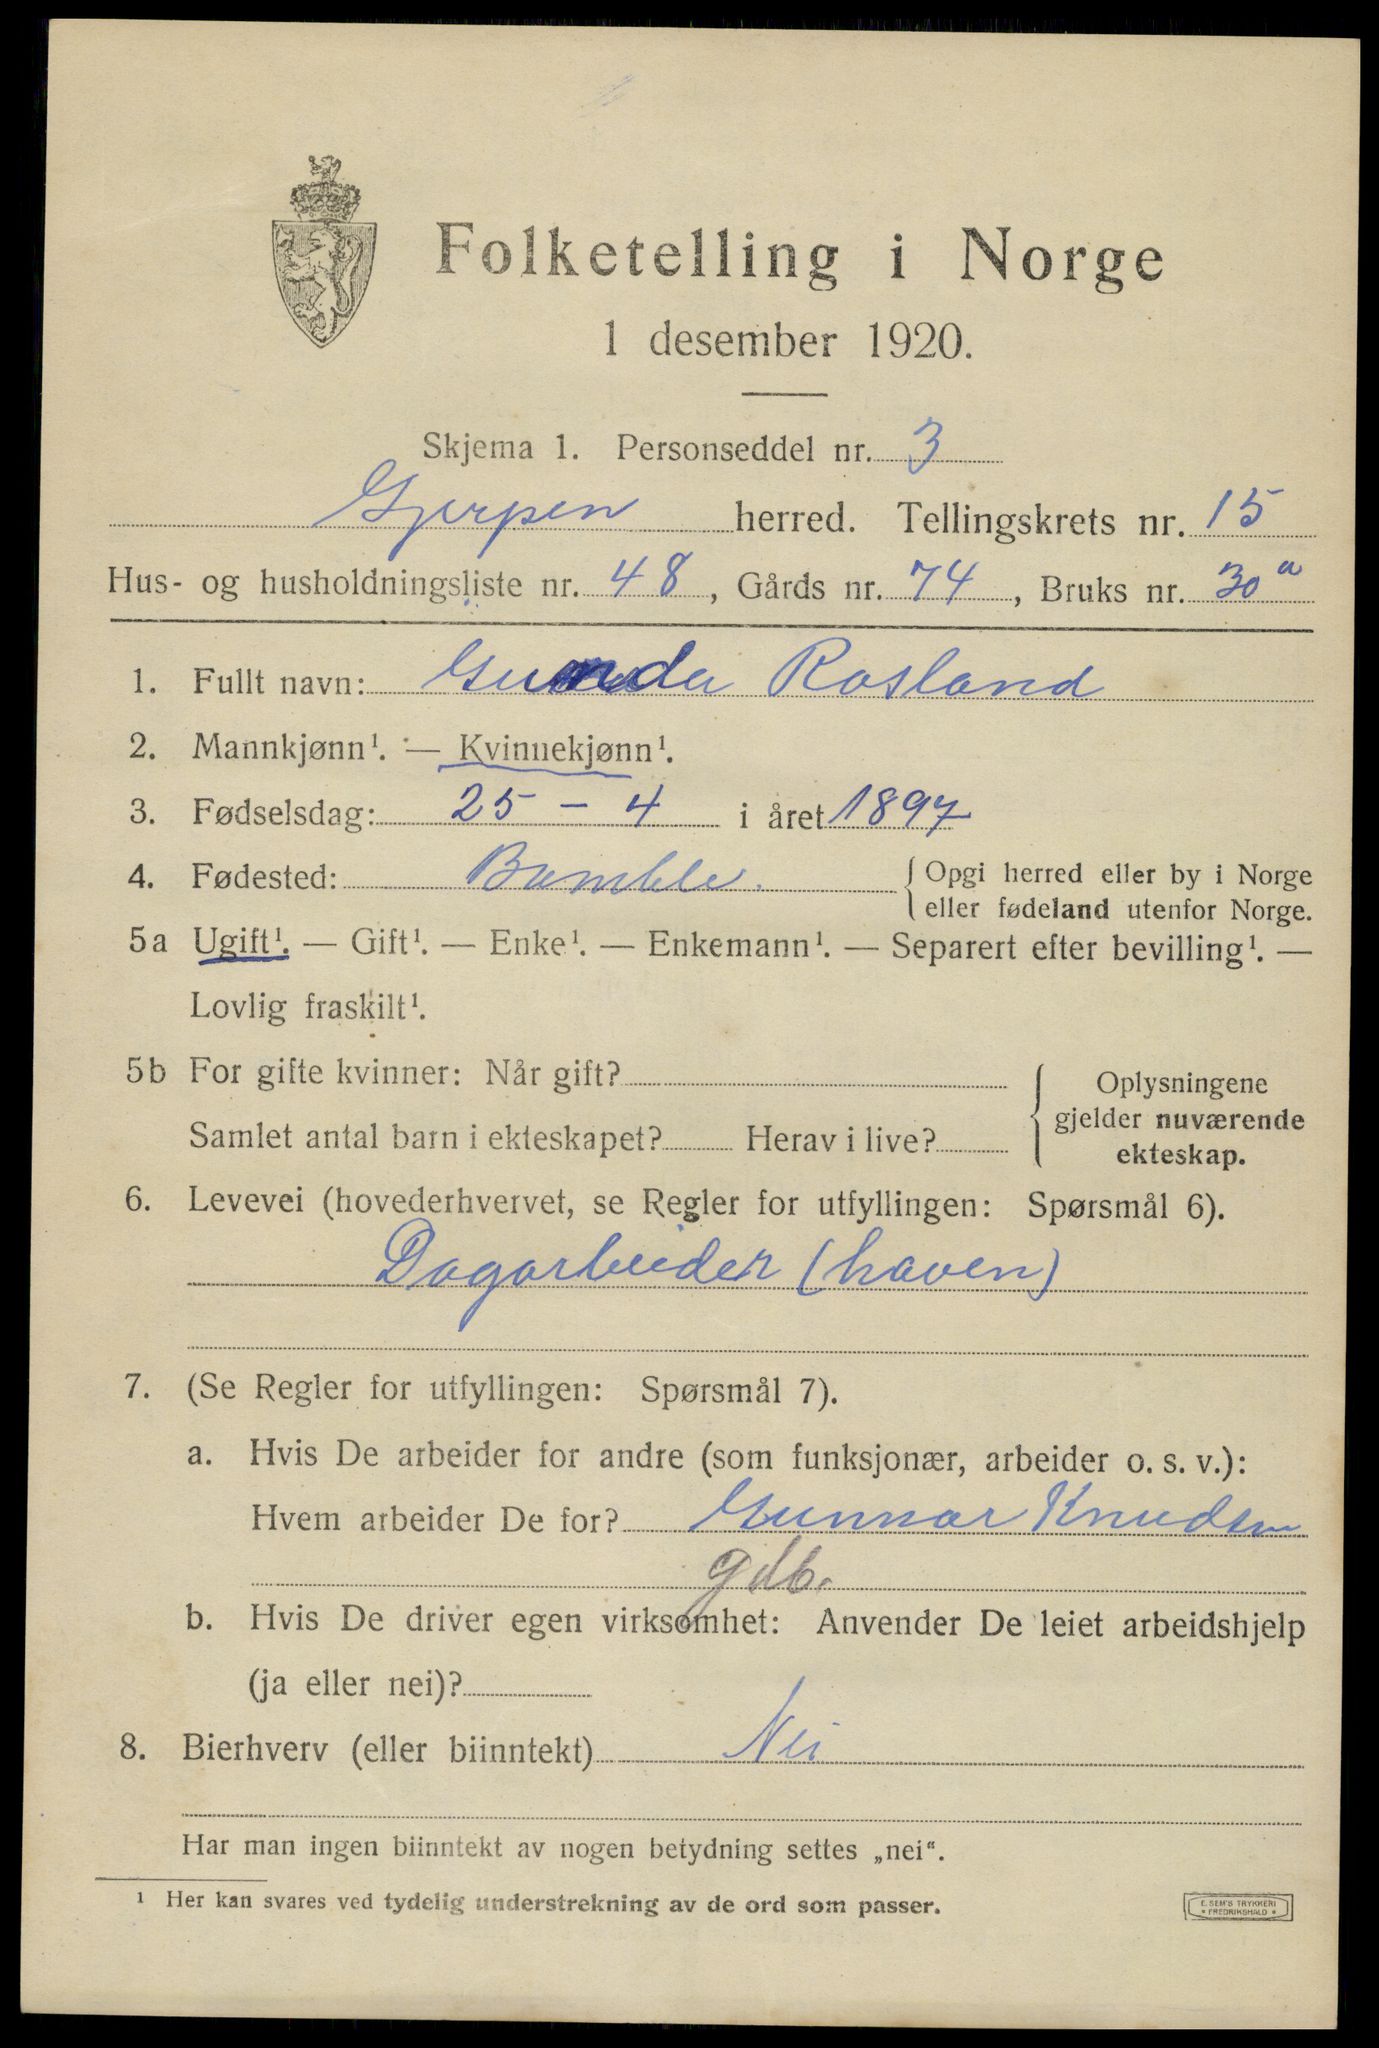 Folketelling i Norge
1 desember 1920.
Skjema 1. Personseddel nr. 3
Gjerpen herred. Tellingskrets nr. 15
Hus- og husholdningsliste nr. 48, Gårds nr. 74, Bruks nr. 30 a
1. Fullt navn: Gunda Rosland
2. Mannkjønn¹. — Kvinnekjønn¹.
3. Fødselsdag: 25 – 4 i året 1897
4. Fødested: Bamble. { Opgi herred eller by i Norge
eller fødeland utenfor Norge.
5a Ugift¹. — Gift¹. — Enke¹. — Enkemann¹. — Separert efter bevilling¹. —
Lovlig fraskilt¹.
5b For gifte kvinner: Når gift?
Samlet antal barn i ekteskapet? Herav i live?
Oplysningene
gjelder nuværende
ekteskap.
6. Levevei (hovederhvervet, se Regler for utfyllingen: Spørsmål 6).
Dagarbeider (haven)
7. (Se Regler for utfyllingen: Spørsmål 7).
a. Hvis De arbeider for andre (som funksjonær, arbeider o. s. v.):
Hvem arbeider De for? Gunnar Knudsen
gdb.
b. Hvis De driver egen virksomhet: Anvender De leiet arbeidshjelp
(ja eller nei)?
8. Bierhverv (eller biinntekt) Nei
Har man ingen biinntekt av nogen betydning settes „nei“.
¹ Her kan svares ved tydelig understrekning av de ord som passer.
E. SEM'S TRYKKERI
* FREDRIKSHALD *